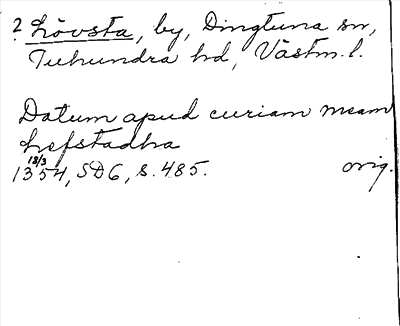 ? Lövsta, by, Dingtuna sn,
Tuhundra hd, Västm. l.
Datum apud curiam meam
Lefstadha
18/3
1354, SD6, s. 485. orig.